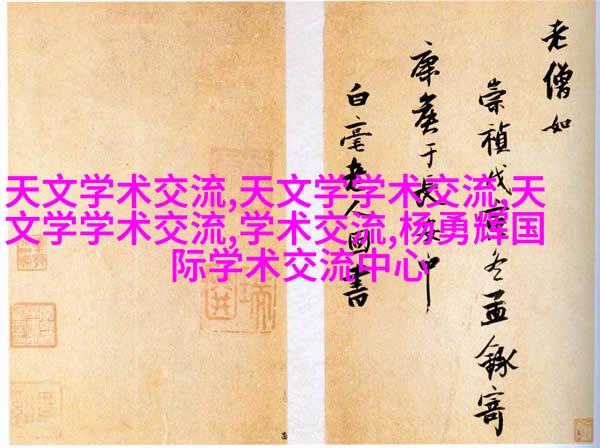 天文学术交流,天文学学术交流,天
文学学术交流,学术交流,杨勇辉国
际学术交流中心
老僧如
崇禎戊冬孟寄
康于長中
白毫老人書